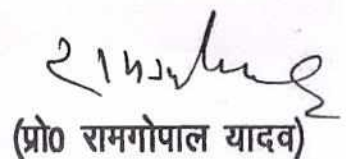 (प्रो0 रामगोपाल यादव)